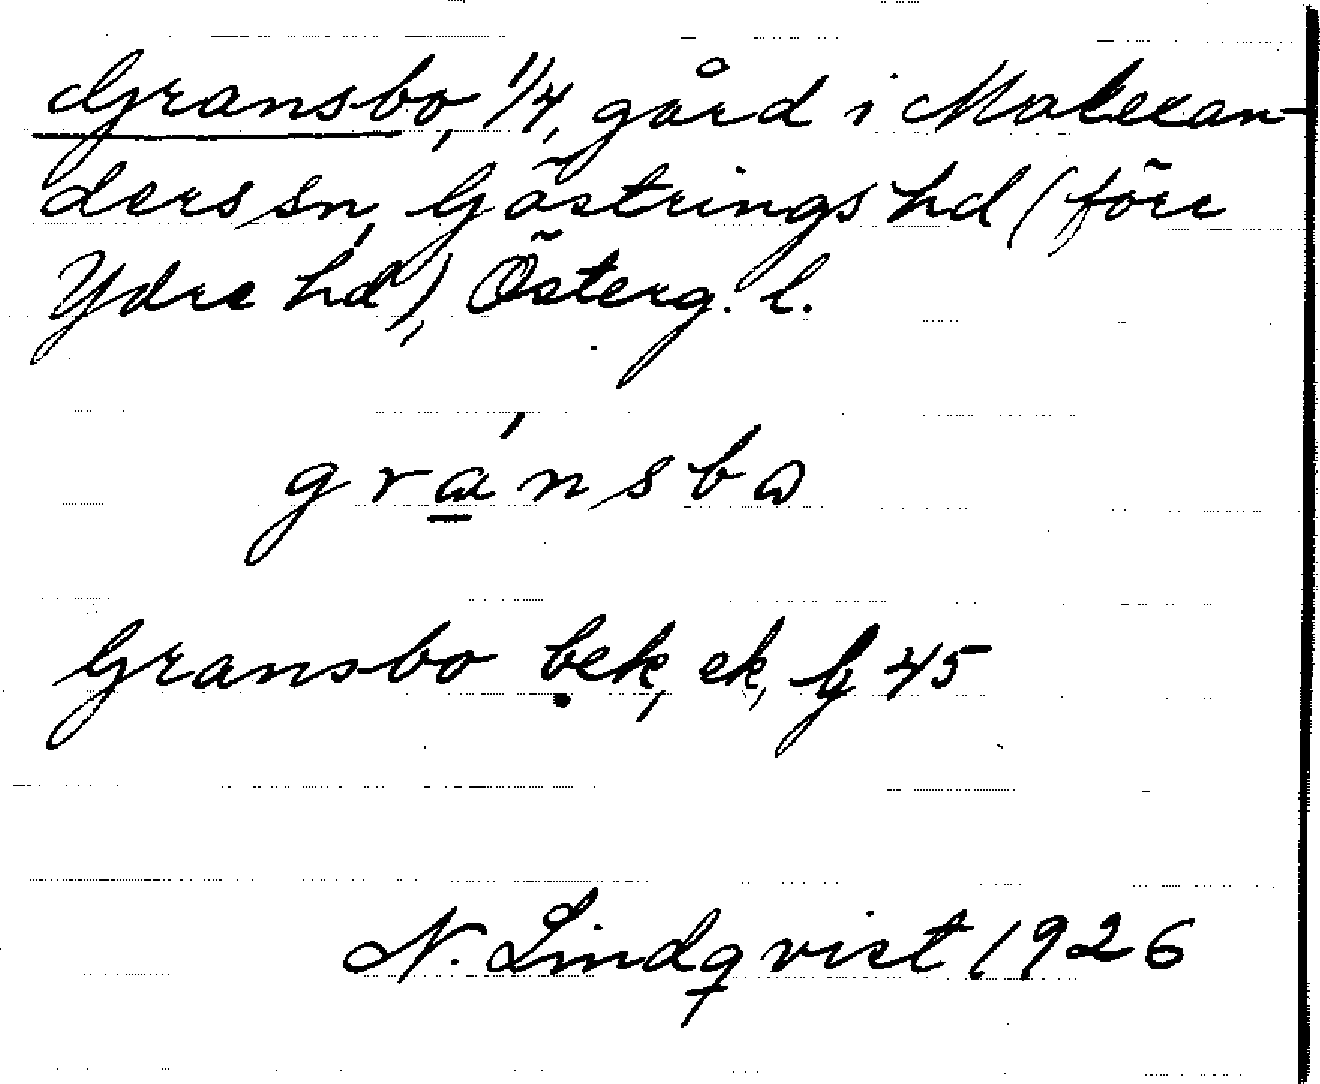 Gransbo, 1/4, gård i Malexan-
ders sn, Göstrings hd (förr
Ydre hd), Österg. l.
gránsbɷ
Gransbo bek, ek, Gj 45
N. Lindqvist 1926